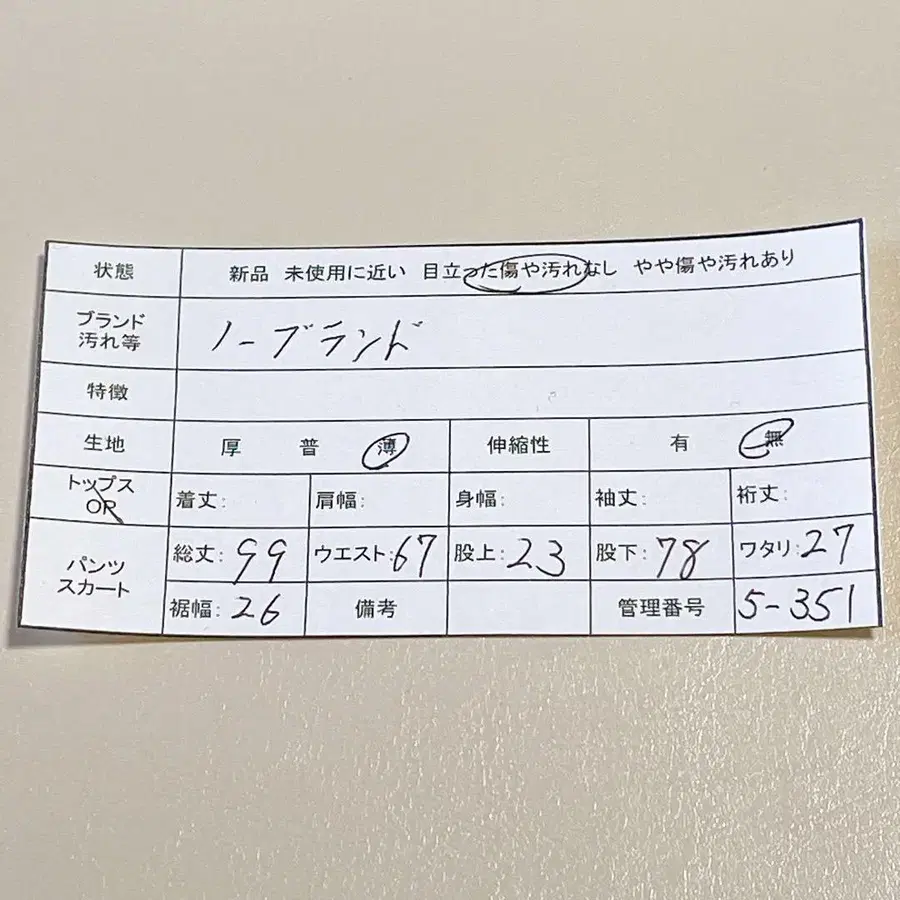 状態 新品 未使用に近い 目立った傷や汚れなし やや傷や汚れあり
ブランド
汚れ等 ノーブランド
特徴
生地 厚 普 薄 伸縮性 有 無
トップス
OR
着丈: 肩幅: 身幅: 袖丈: 裄丈:
パンツ
スカート
総丈: 99 ウエスト: 67 股上: 23 股下: 78 ワタリ: 27
裾幅: 26 備考 管理番号 5-351